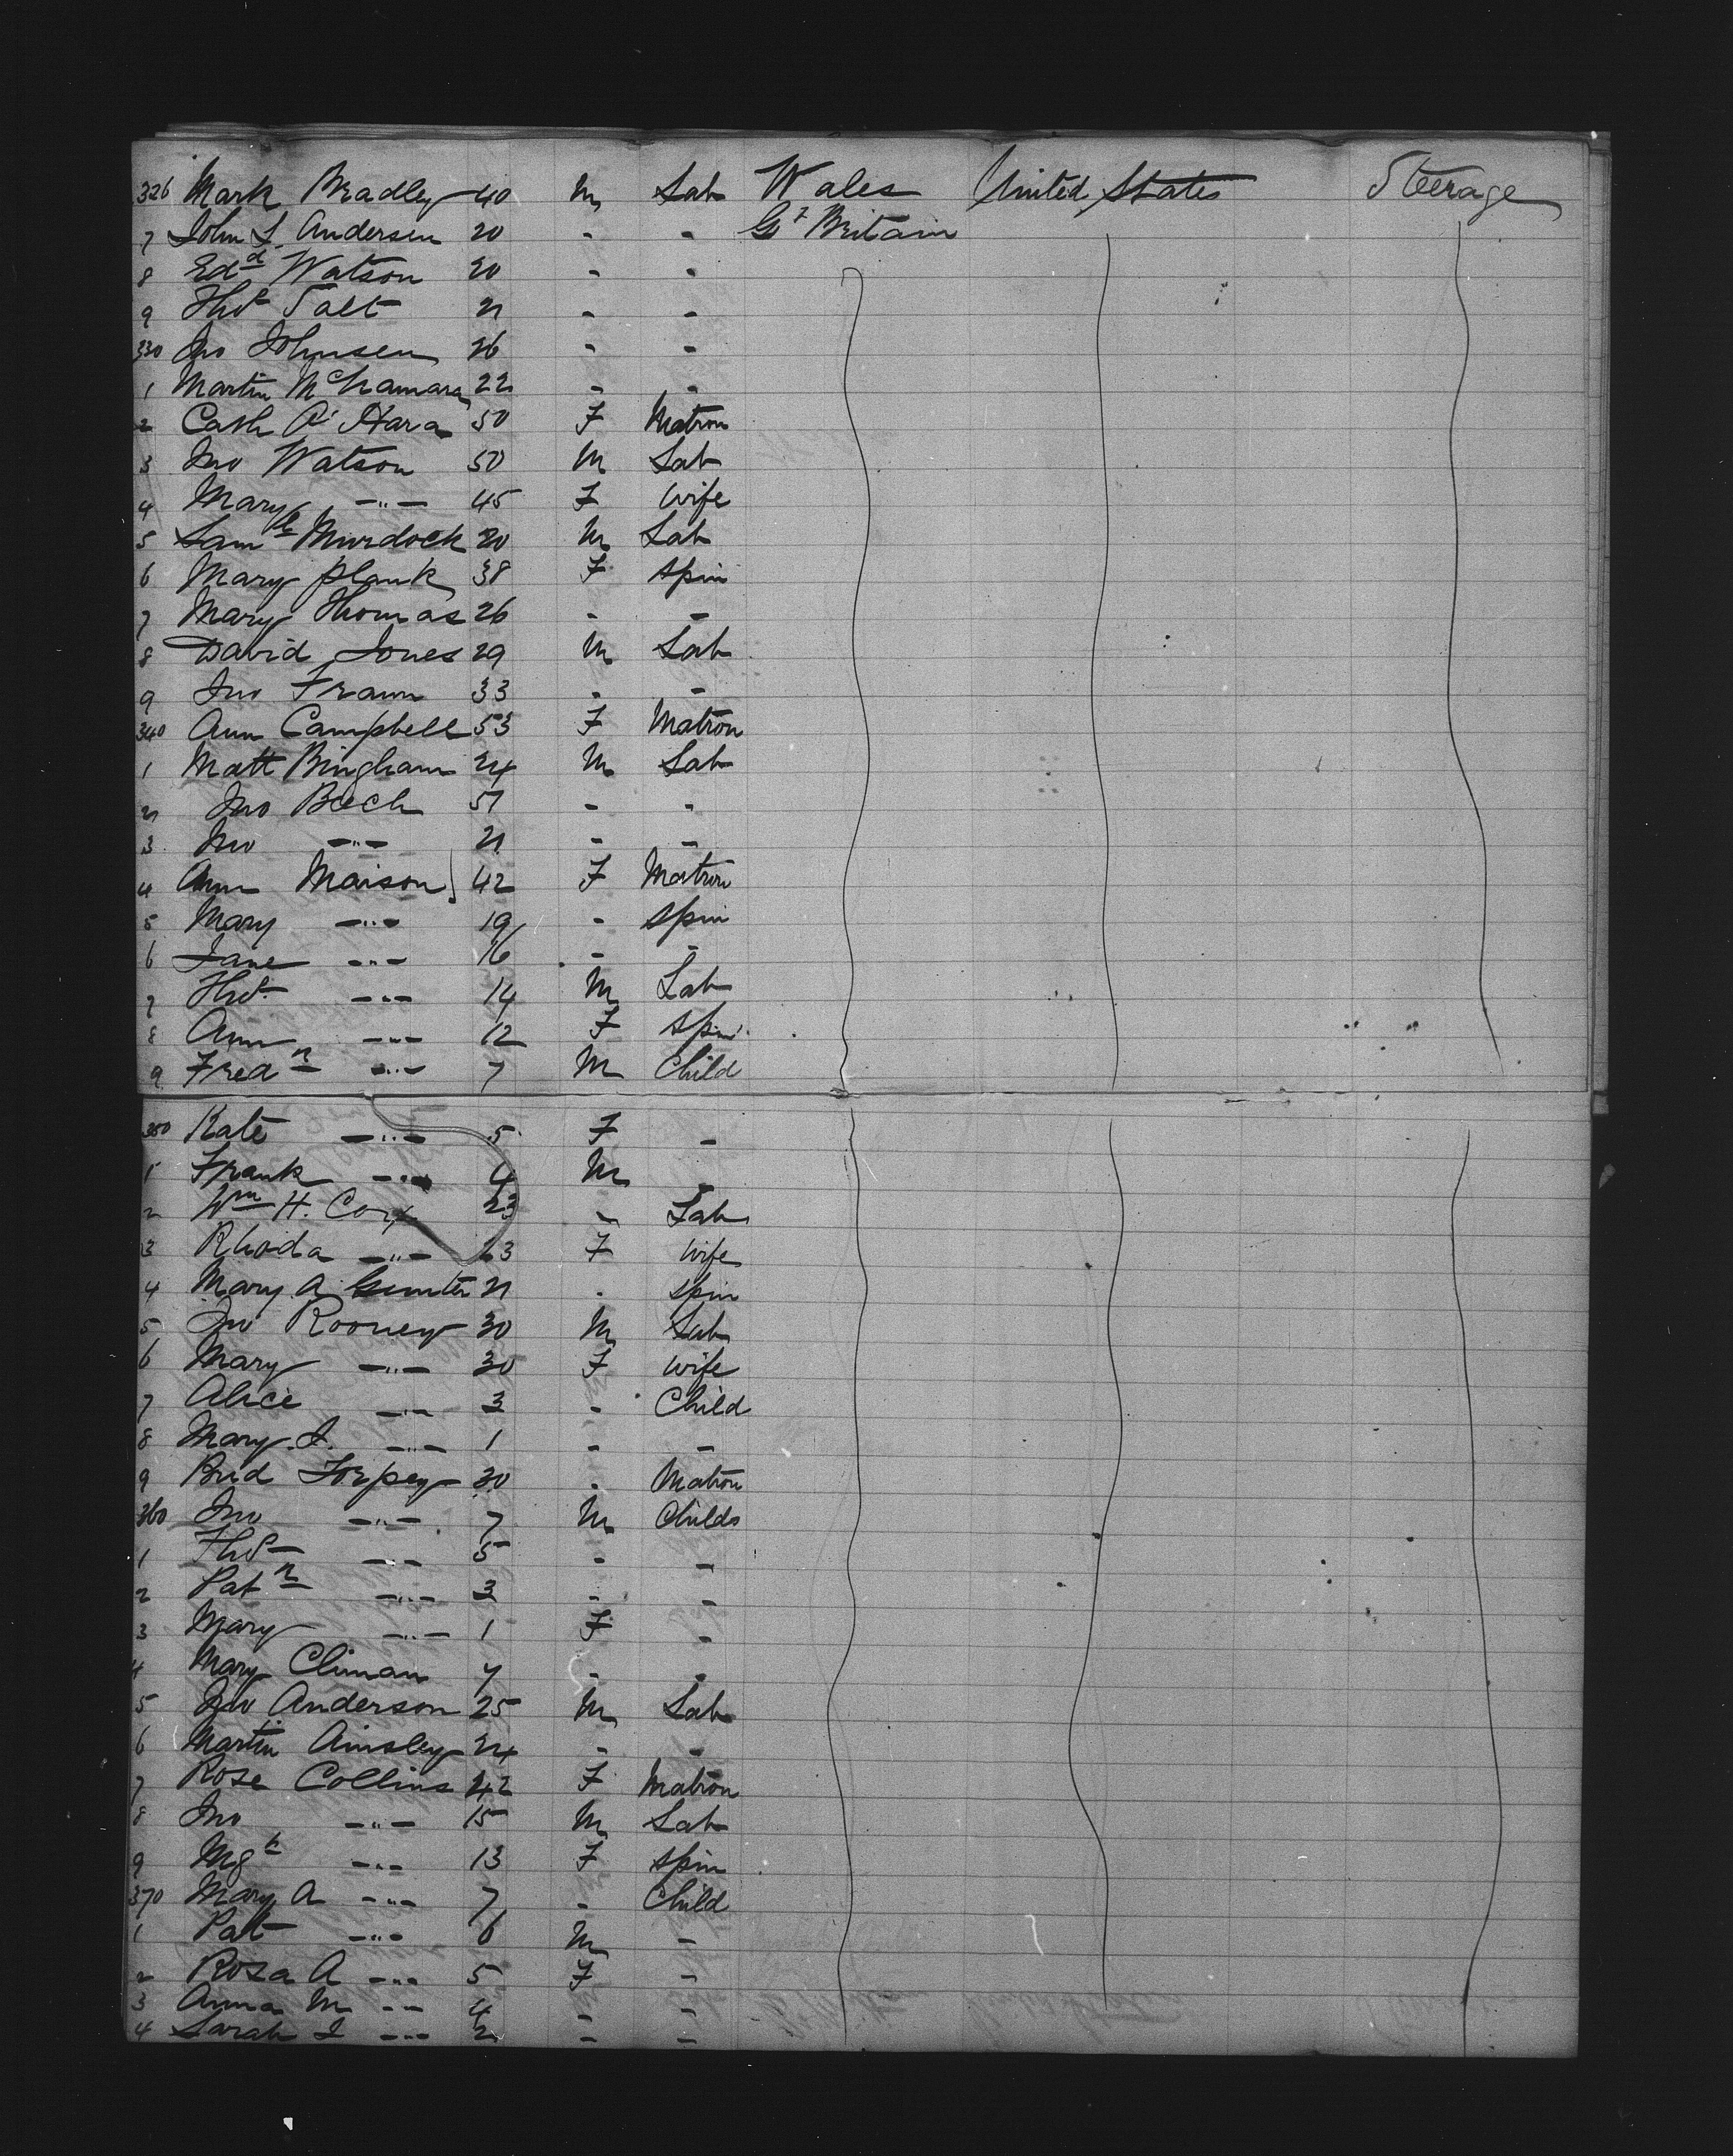 326 Mark Bradley 40 M Lab Wales United States Steerage
7 John S. Andersen 20 - - Gt Britain
8 Edd Watson 20 - -
9 Thos Salt 21 - -
330 Jno Johnsen 26 - -
1 Martin McNamara 22 - -
2 Cath O'Hara 50 F Matron
3 Jno Watson 50 M Lab
4 Mary -"- 45 F Wife
5 Saml Murdock 20 M Lab
6 Mary Plank 38 F Spin
7 Mary Thomas 26 - -
8 David Jones 29 M Lab
9 Jno Frawn 33 - -
340 Ann Campbell 53 F Matron
1 Matt Bingham 24 M Lab
2 Jno Beech 51 - -
3 Jno -"- 21 - -
4 Ann Maison 42 F Matron
5 Mary -"- 19 - Spin
6 Jane -"- 16 - -
7 Thos -"- 14 M Lab
8 Ann -"- 12 F Spin
9 Fredk -"- 7 M Child
350 Kate -"- 5 F -
1 Frank -"- 4 M -
2 Wm H. Cox 23 - Lab
3 Rhoda -"- 23 F Wife
4 Mary A Gunter 21 - Spin
5 Jno Rooney 30 M Lab
6 Mary -"- 30 F Wife
7 Alice -"- 3 - Child
8 Mary J. -"- 1 - -
9 Brid Torpey 30 - Matron
360 Jno -"- 7 M Childs
1 Thos -"- 5 - -
2 Patk -"- 3 - -
3 Mary -"- 1 F -
4 Mary Climan - -
5 Jno Anderson 25 M Lab
6 Martin Ainsley 24 - -
7 Rose Collins 42 F Matron
8 Jno -"- 15 M Lab
9 Mgt -"- 13 F Spin
370 Mary A -"- 7 - Child
1 Pat -"- 6 M -
2 Rosa A -"- 5 F -
3 Anna M -"- 4 - -
4 Sarah J -"- 2 - -